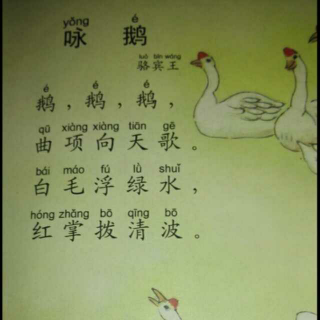 yǒng é
咏 鹅
luò bīn wáng
骆宾王
é é é
鹅，鹅，鹅，
qū xiàng xiàng tiān gē
曲项向天歌。
bái máo fú lǜ shuǐ
白毛浮绿水，
hóng zhǎng bō qīng bō
红掌拨清波。